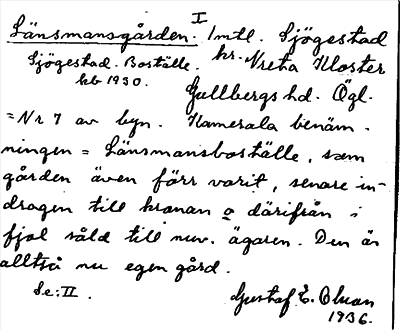 I
Länsmansgården. Imtl. Sjögestad
Sjögestad. Boställe. kr. Vreta Kloster
kb 1930. Gullbergs hd. Ögl.
=Nr 7 av byn. Kamerala benäm-
ningen = Länsmansboställe, som
gården även förr varit, senare in-
dragen till kronan o därifrån i
fjol såld till nuv. ägaren. Den är
alltså nu egen gård.
Se: II. Gustaf E. Olson
1936.